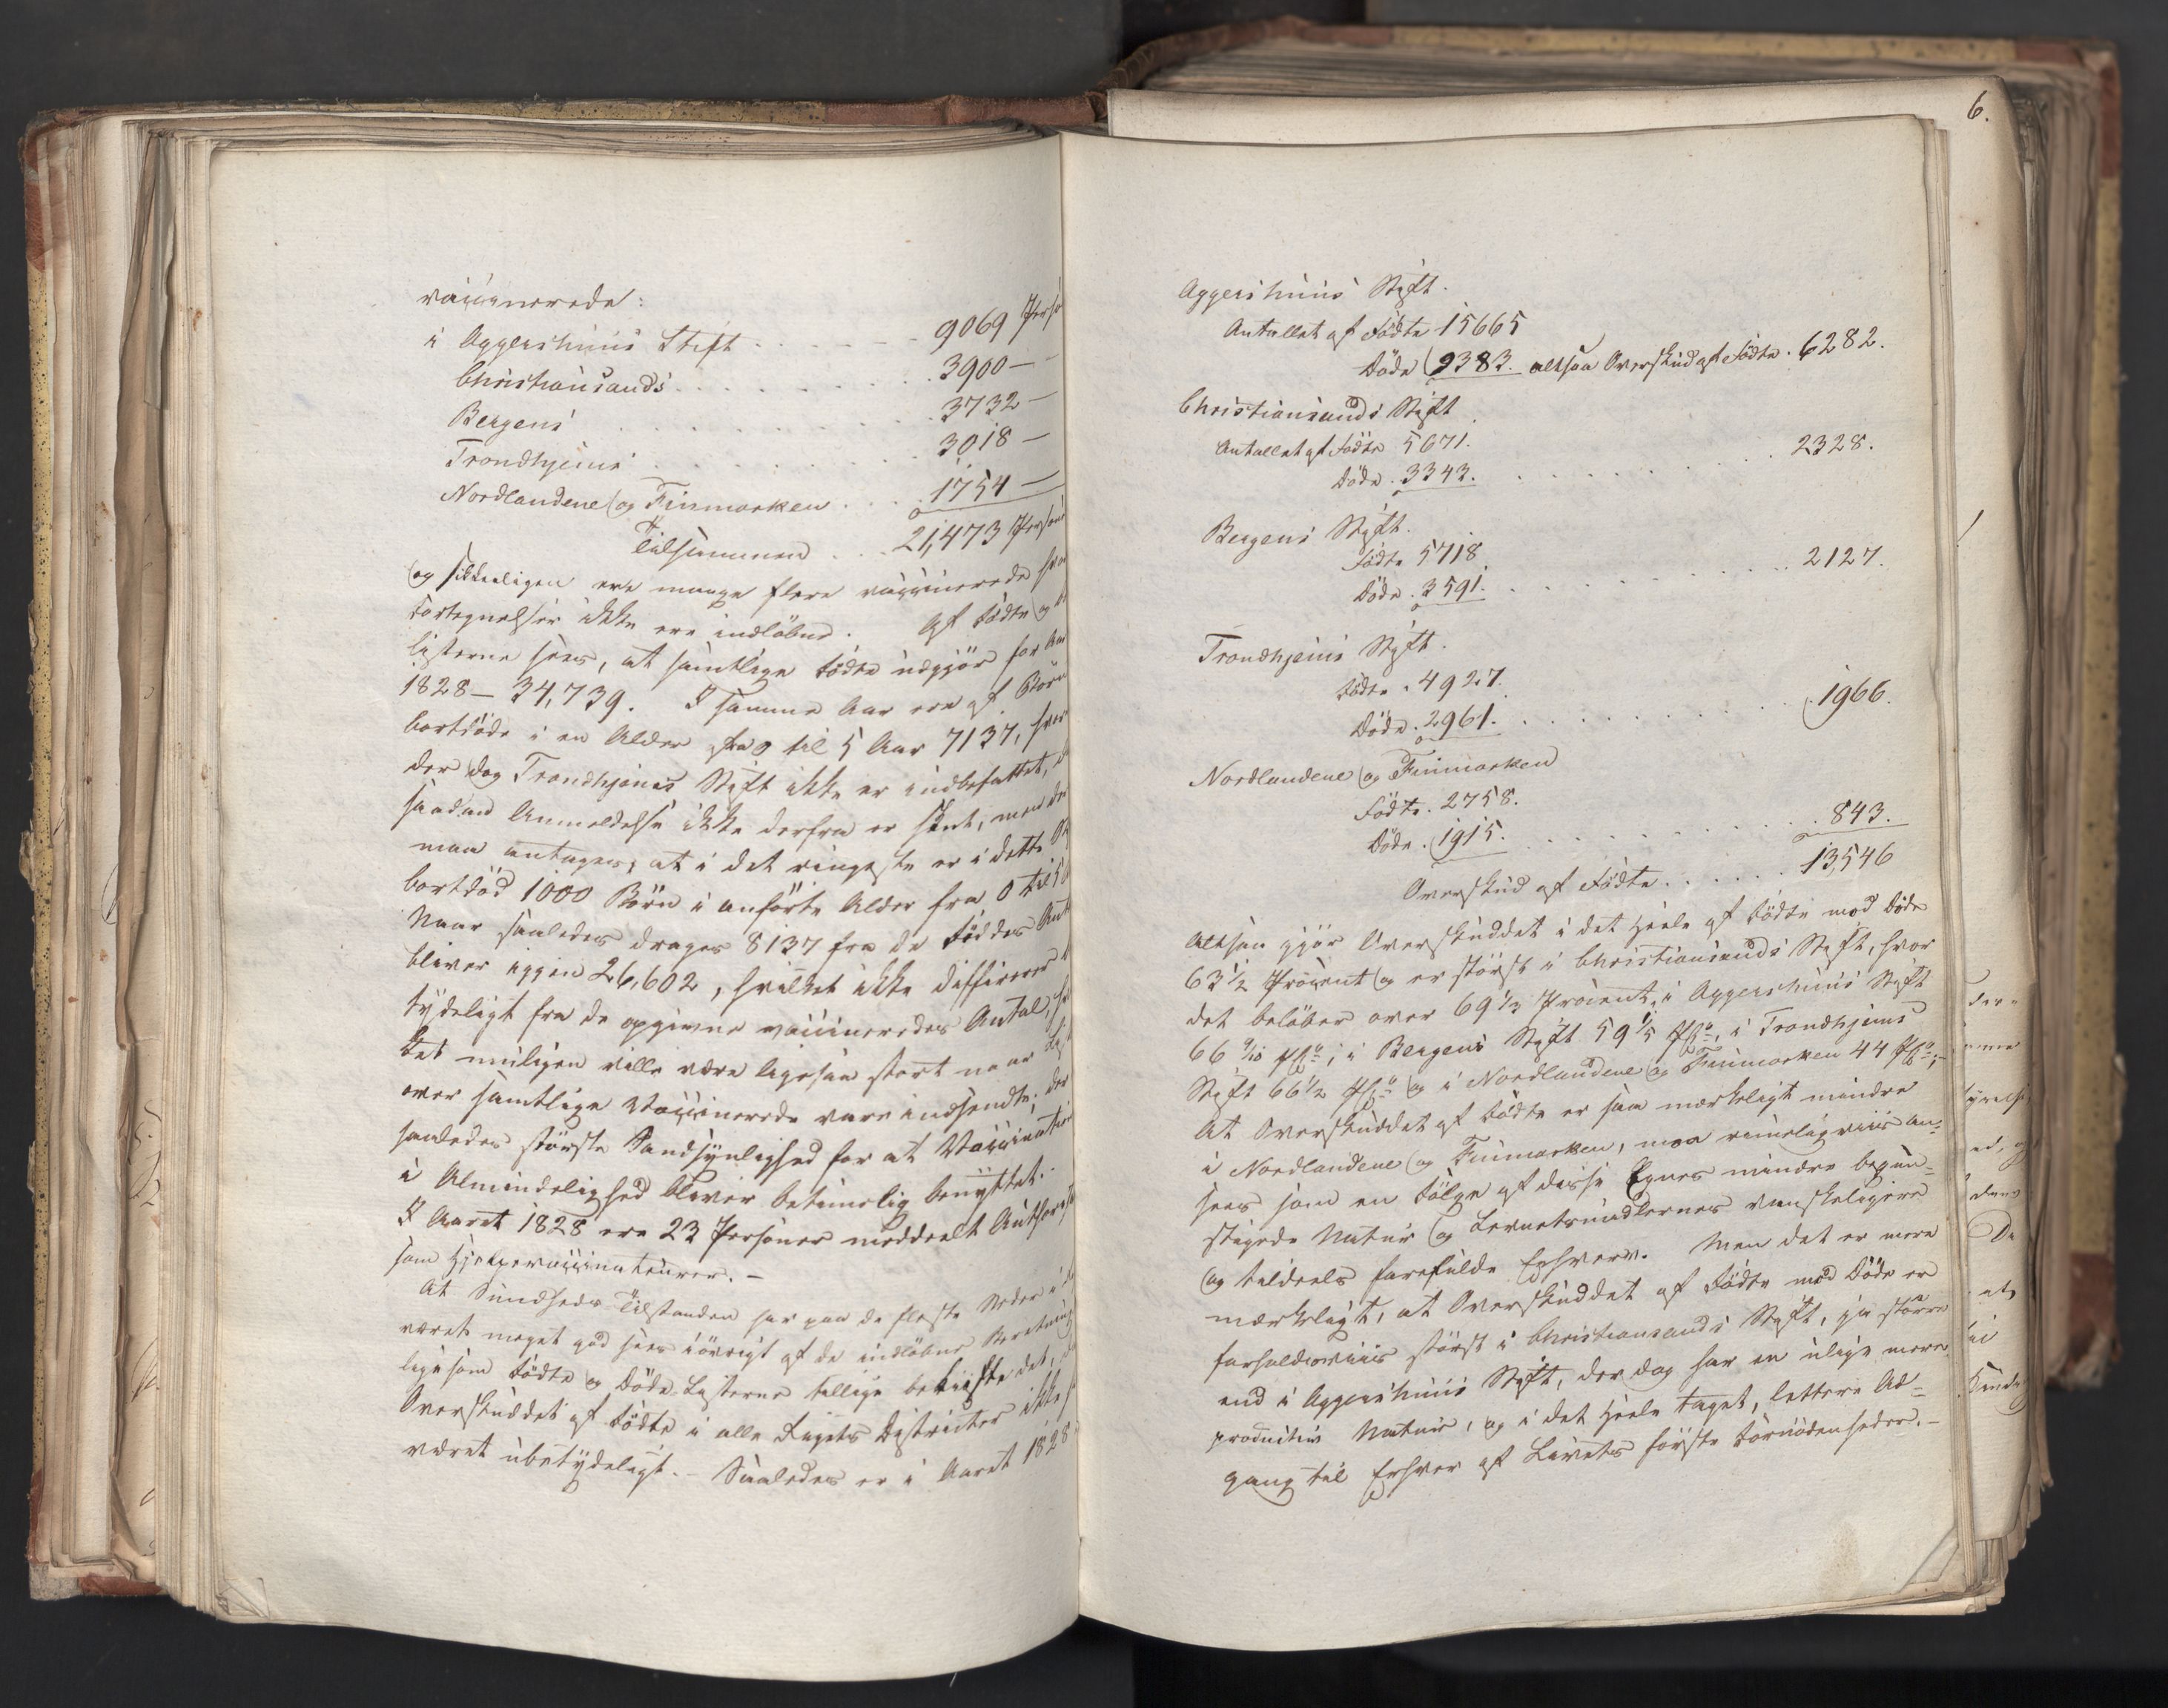 vaccinerede:
i Aggershuus Stift . . . . . . 9069 Perso
Christiansands . . . . . . . 3900 —
Bergens . . . . . . . . . 3732 —
Trondhjems . . . . . . . . 3018 —
Nordlandene og Finmarken . . . 1754 —
Tilsammen . . . 21,473 Person
og sikkerligen ere mange flere vaccinerede hvor
Fortegnelser ikke ere indløbne. Af Fødte og
Listerne sees, at samtlige Fødte udgjør for Aar
1828 — 34,739. I samme Aar ere af Børn
bortdøde i en Alder fra 0 til 5 Aar 7137, hvor
der dog Trondhjems Stift ikke er indbefattet,
saadan Anmeldelse ikke derfra er skeet, men der
maa antages, at i det ringeste er i dette
bortdød 1000 Børn i anførte Alder fra 0 til 5
Naar saaledes drages 8137 fra de Føddes Ant
bliver igjen 26,602, hvilket ikke differerer
tydeligt fra de opgivne vaccineredes Antal,
det muligen ville være ligesaa stort naar
over samtlige Vaccinerede vare indsendte; der
saaledes største Sandsynlighed for at Vaccination
i Almindelighed bliver betimelig benyttet.
I Aaret 1828 ere 23 Personer meddeelt Authoris
som Hjelpevaccinateurer. —
At Sundheds Tilstanden har paa de fleste Steder i
været meget god sees iøvrigt af de indløbne Beretning
ligesom Fødte og Døde Listerne tillige beviiste det,
Overskuddet af Fødte i alle Rigets Districter ikke
været ubetydeligt. — Saaledes er i Aaret 1828
6.
Aggershuus Stift.
Antallet af Fødte 15665
Døde 9383. altsaa Overskud af Fødte. 6282.
Christiansands Stift
Antallet af Fødte 5671.
Døde. 3343. . . . . . . . . 2328.
Bergens Stift.
Fødte 5718
Døde. 3591. . . . . . . . . 2127.
Trondhjems Stift.
Fødte. 4927.
Døde. 2961. . . . . . . . . 1966.
Nordlandene og Finmarken
Fødte. 2758.
Døde. 1915. . . . . . . . . 843.
Overskud af Fødte. . . . . . 13,546
Altsaa gjør Overskuddet i det Heele af Fødte mod Døde
63 1/2 Procent og er størst i Christiansands Stift, hvor
det beløber over 69 1/3 Procent, i Aggershuus Stift
66 9/10 pCto; i Bergens Stift 59 1/5 pCto, i Trondhjems
Stift 66 1/2 pCto og i Nordlandene og Finmarken 44 pCto; —
At Overskuddet af Fødte er saa mærkeligt mindre
i Nordlandene og Finmarken, maa rimeligviis an-
sees som en Følge af disse Egnes mindre begun-
stigede Natur og Levnetsmidlernes vanskeligere
og tildeels farefulde Erhverv. Men det er mere
mærkeligt, at Overskuddet af Fødte mod Døde er
forholdsviis størst i Christiansands Stift, ja større
end i Aggershuus Stift, der dog har en ulige mere
productiv Natur, og i det Heele taget, lettere Ad-
gang til Erhverv af Livets første Fornødenheder. —